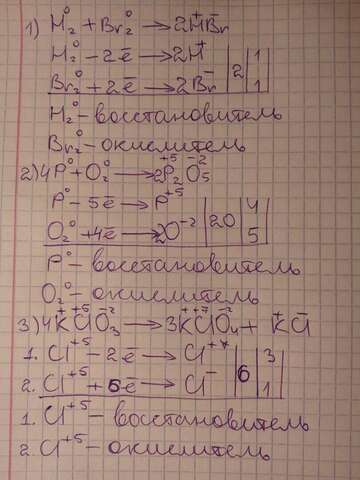 1) H₂⁰ + Br₂⁰ → 2H⁺Br⁻
H₂⁰ − 2ē → 2H⁺ | 2 | 1
Br₂⁰ + 2ē → 2Br⁻ | 1
H₂⁰ – восстановитель
Br₂⁰ – окислитель
2) 4P⁰ + O₂⁰ → 2P₂⁺⁵O₅⁻²
P⁰ − 5ē → P⁺⁵ | 20 | 4
O₂⁰ + 4ē → 2O⁻² | 5
P⁰ – восстановитель
O₂⁰ – окислитель
3) 4K⁺Cl⁺⁵O₃⁻² → 3K⁺Cl⁺⁷O₄⁻² + K⁺Cl⁻
1. Cl⁺⁵ − 2ē → Cl⁺⁷ | 6 | 3
2. Cl⁺⁵ + 6ē → Cl⁻ | 1
1. Cl⁺⁵ – восстановитель
2. Cl⁺⁵ – окислитель